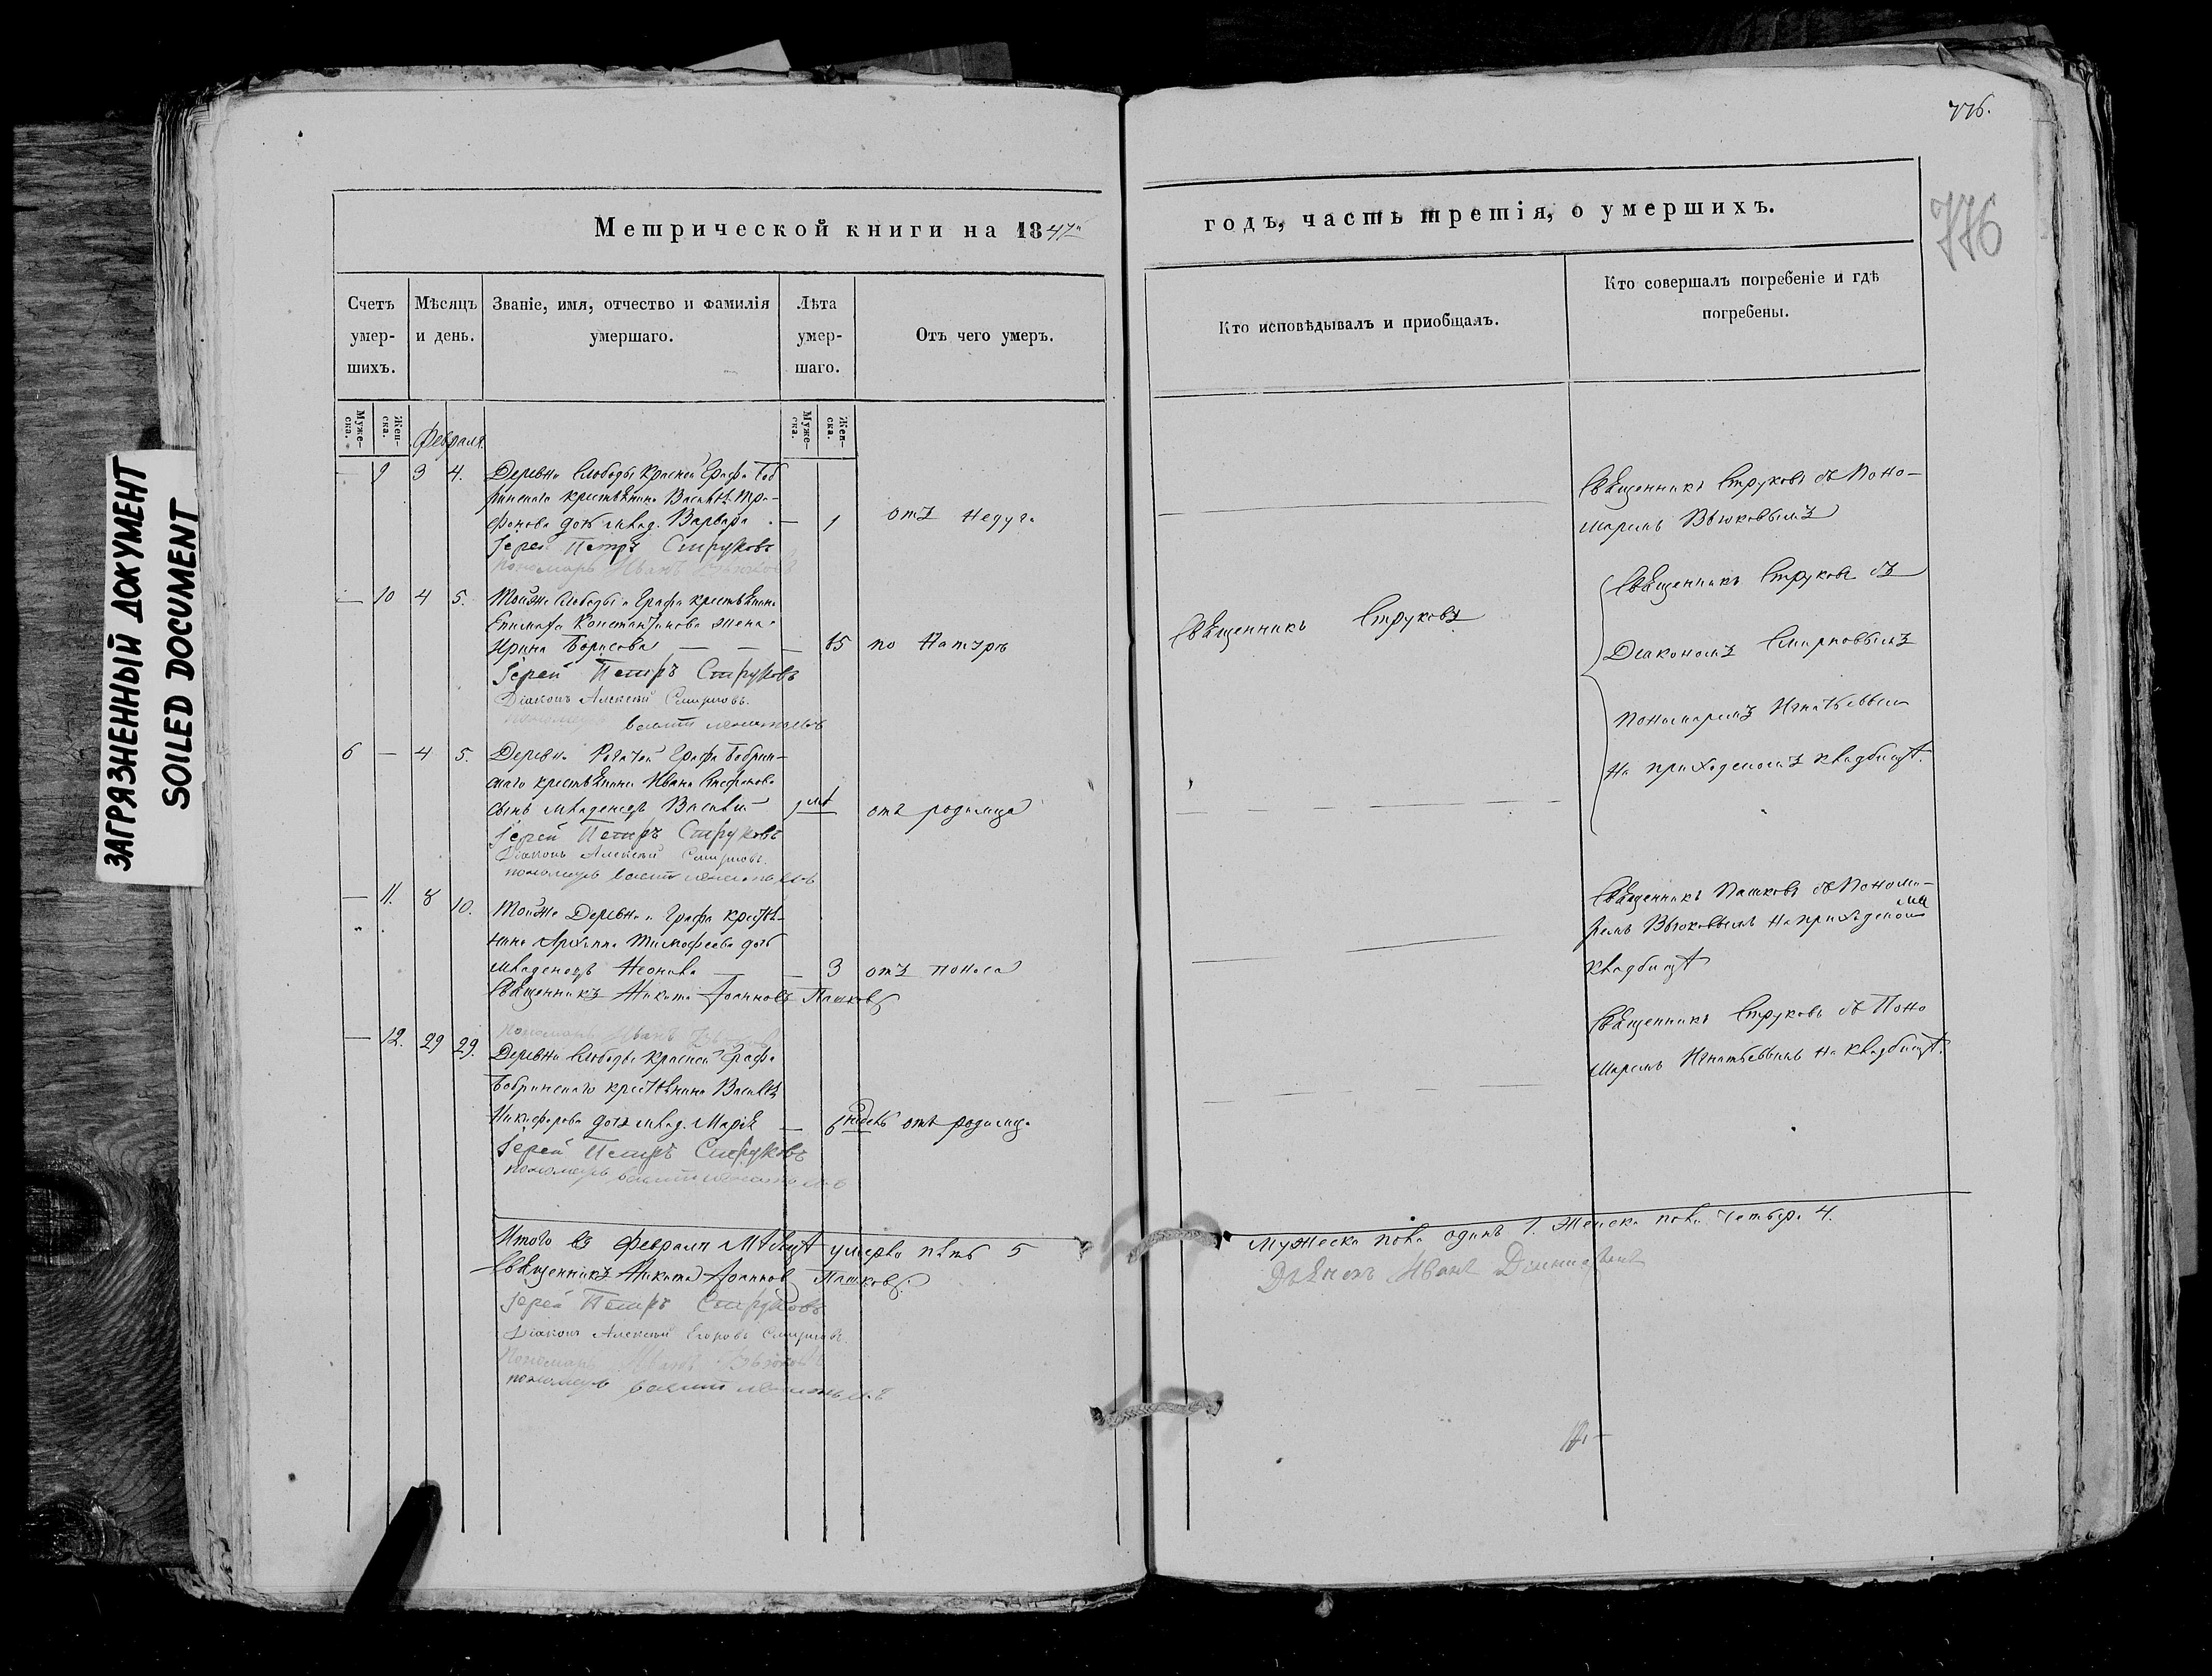 776.
776
ЗАГРЯЗНЕННЫЙ ДОКУМЕНТ
SOILED DOCUMENT
Метрической книги на 1847й
годъ, часть третія, о умершихъ.
Счетъ умер-шихъ.
Мѣсяцъ и день.
Званіе, имя, отчество и фамилія умершаго.
Лѣта умер-шаго.
Отъ чего умеръ.
Кто исповѣдывалъ и пріобщалъ.
Кто совершалъ погребеніе и гдѣ погребены.
Муже-ска.
Жен-ска.
Муже-ска.
Жен-ска.
Февраля
— 9 3 4. Деревни Слободы Красной Графа Боб
ринскаго крестьянина Василья Три-
фонова дочь млад. Варвара — 1 отъ недуга
Священникъ Струковъ съ Поно-
маремъ Вьюковымъ
Іерей Петръ Струковъ
Пономарь Иванъ Вьюковъ
— 10 4 5. Тойже Слободы и Графа крестьянина
Константинова жена
Ирина Борисова — — — 65 по натурѣ
Священникъ Струковъ
Священникъ Струковъ съ
Діакономъ Смирновымъ
Пономаремъ Игнатьевымъ
На приходскомъ кладбищѣ.
Іерей Петръ Струковъ
Діаконъ Алексѣй Смирновъ.
пономарь
6 — 4 5. Деревни Графа Бобрин-
скаго крестьянина Ивана Стефанова
сынъ младенецъ Василій отъ родимца
Іерей Петръ Струковъ
Діаконъ Алексѣй Смирновъ.
пономарь
— 11. 8 10. Тойже Деревни и Графа крестья-
нина Архипа Тимофеева дочь
младенецъ Неонила — — 3 отъ поноса
Священникъ Пашковъ съ Понома-
ремъ Вьюковымъ на приходскомъ
кладбищѣ
Священникъ Никита Іоанновъ Пашковъ
Пономарь Иванъ Вьюковъ
— 12. 29 29. Деревни Слободы Красной Графа
Бобринскаго крестьянина Василья
Никифорова дочь млад. Марія — 6 недѣль отъ родимца
Священникъ Струковъ съ Поно
маремъ Игнатьевымъ на кладбищѣ.
Іерей Петръ Струковъ
пономарь
Итого въ Февралѣ мѣсяцѣ умерло пять 5
Мужеска пола одинъ 1. Женска пола четыре 4.
Священникъ Никита Іоанновъ Пашковъ.
Іерей Петръ Струковъ
Діаконъ Алексѣй Егоровъ Смирновъ
Пономарь Иванъ Вьюковъ
пономарь
Иванъ